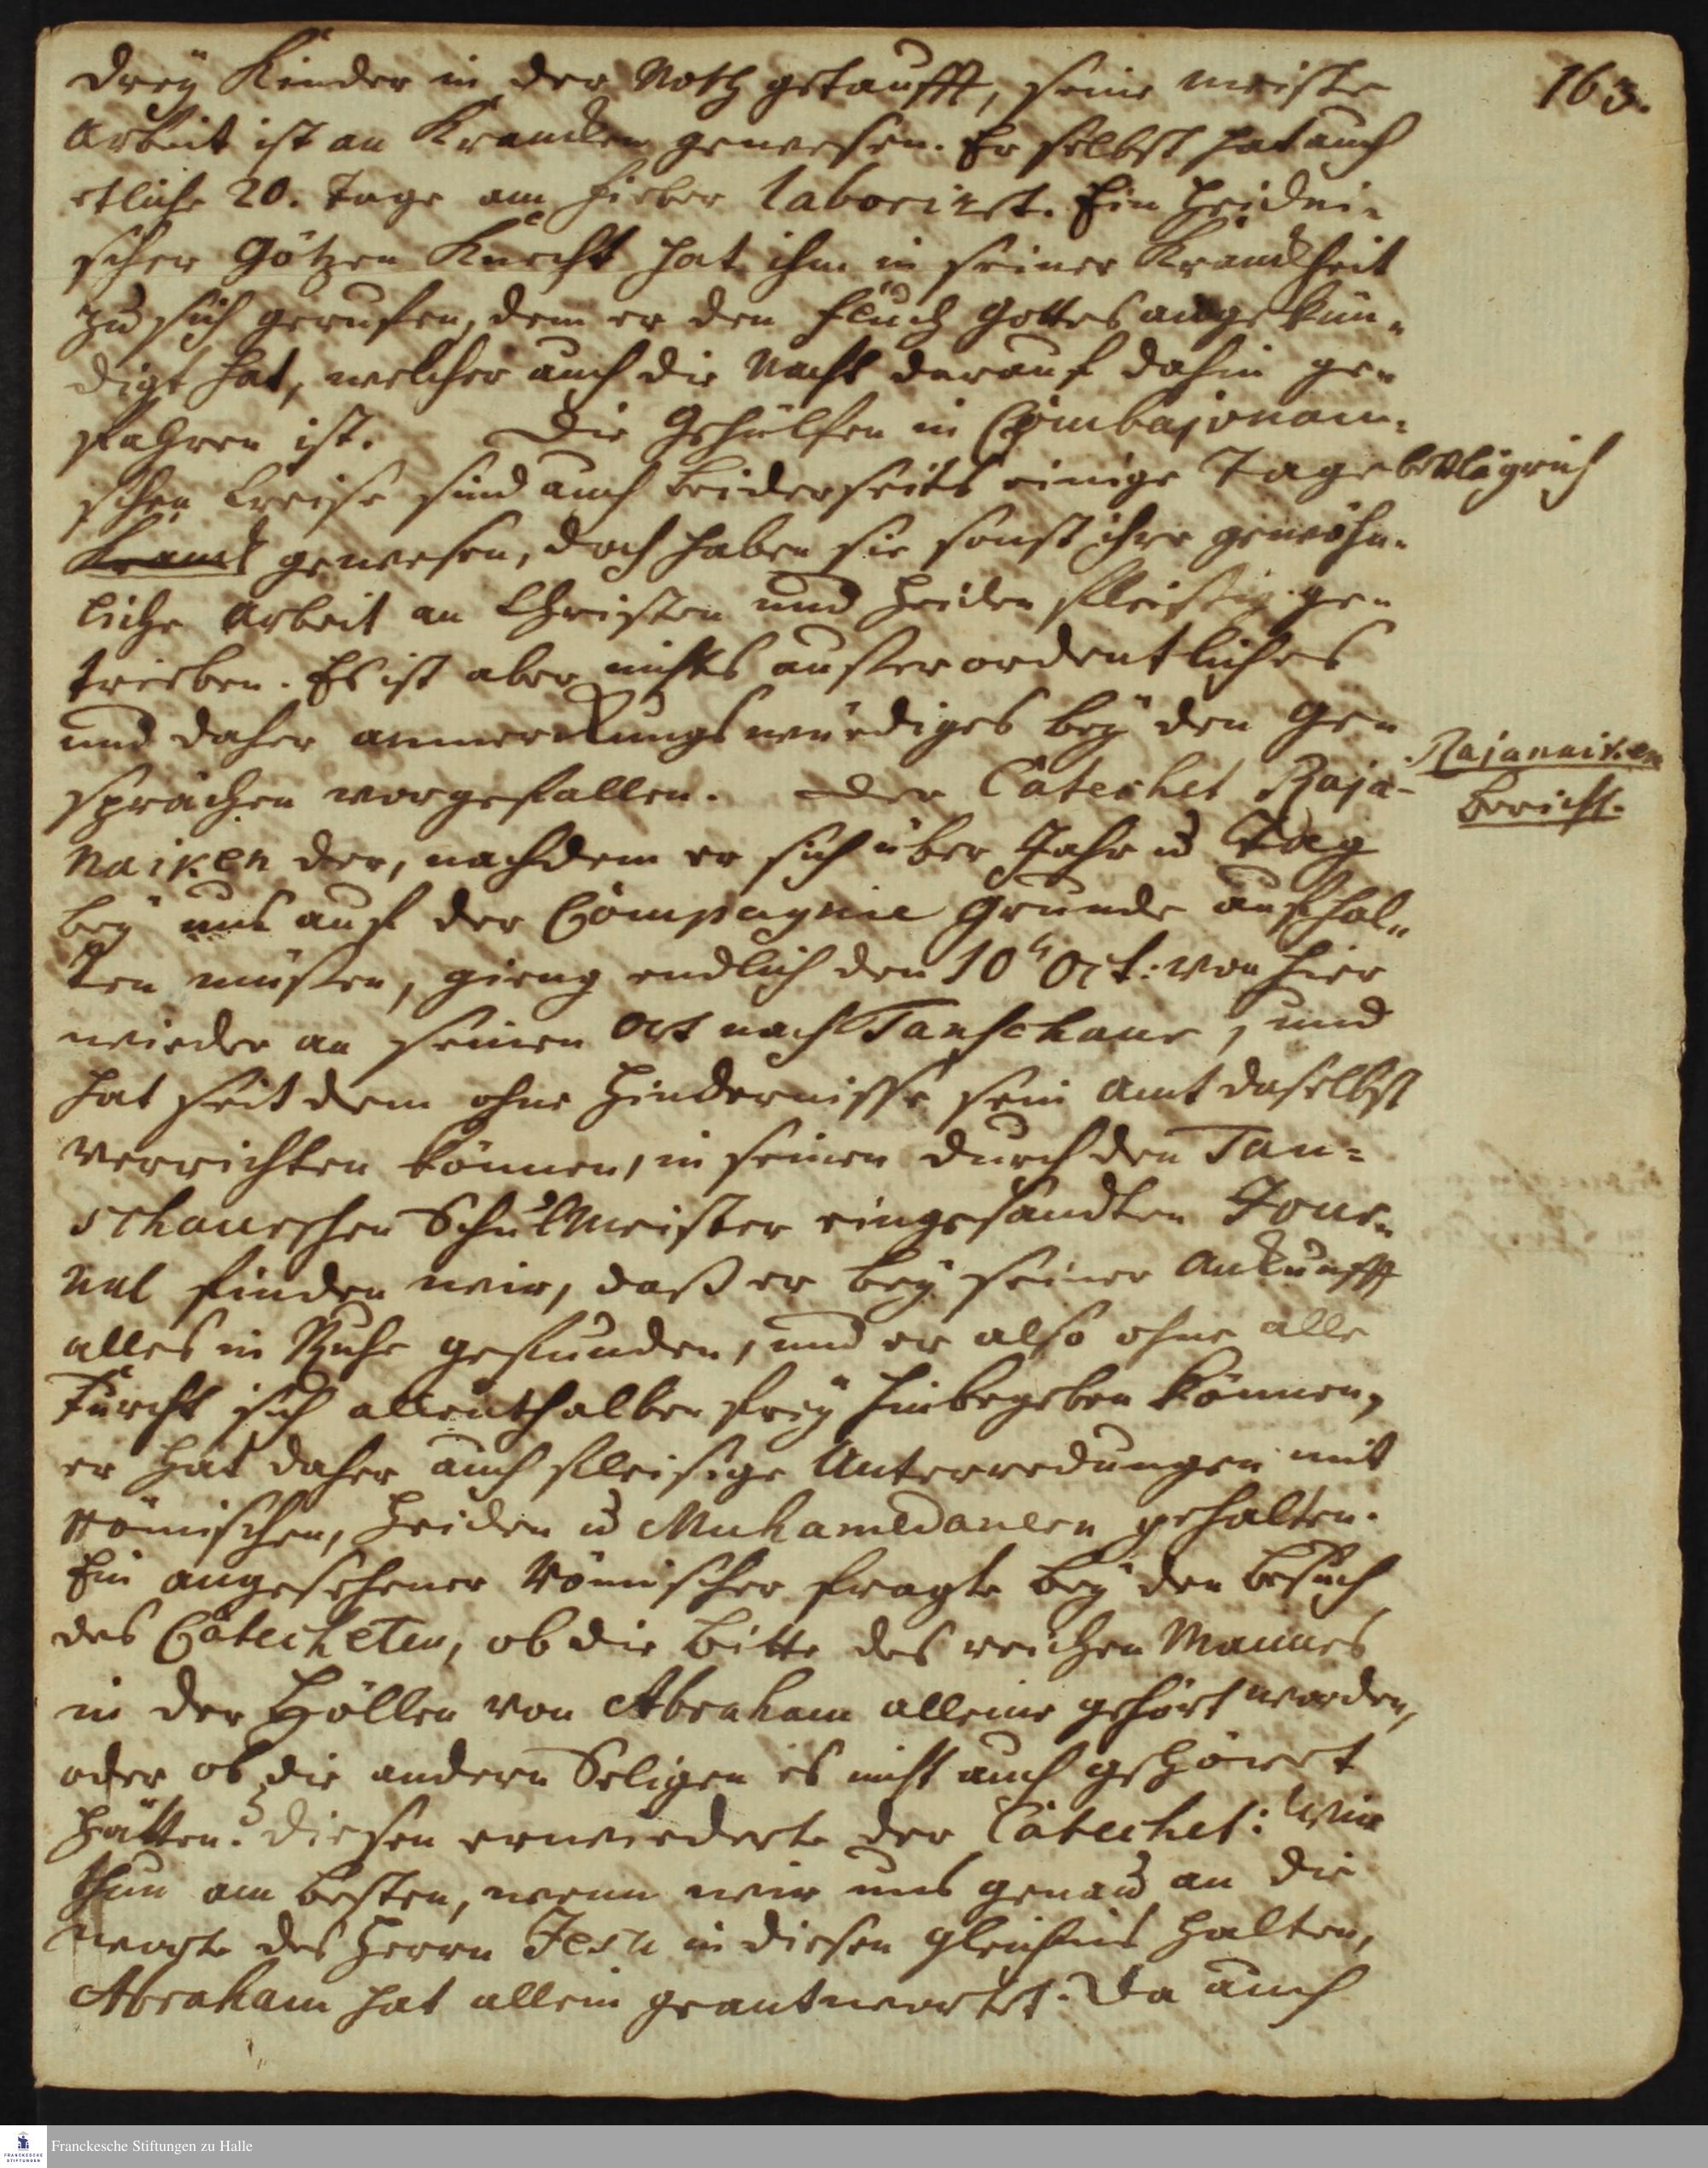 163.
drey Kinder in der Noth getaufft, seine meiste
Arbeit ist an Krancken gewesen. Er selbst hat auch
etliche 20. Tage am Fieber laborirt. Ein Heidni-
scher Götzen Knecht hat ihn in seiner Kranckheit
zu sich geruffen, dem er den Fluch Gottes angekün-
digt hat, welcher auch die Nacht darauf dahin ge-
fahren ist. Die Gehülfen in Combajonam-
schen Creise sind auch beiderseits einige Tage bettlägrich
Kranck gewesen, doch haben sie sonst ihre gewöhn-
liche Arbeit an Christen und Heiden fleissig ge-
trieben. Es ist aber nichts ausserordentliches
und daher anmerckungswürdiges bey den Ge-
sprächen vorgefallen. Der Catechet Raja-
Rajanaiken
Bericht.
naiken der, nachdem er sich über Jahr u Tag
bey uns auf der Compagnie Grunde aufhal-
ten müssen, gieng endlich den 10t Oct: von hier
wieder an seinen Ort nach Tanschaur, und
hat seit dem ohne Hindernisse sein Amt daselbst
verrichten können, in seinen durch den Tan-
schaurschen SchulMeister eingesandten Jour-
nal finden wir, daß er bey seiner Ankunfft
alles in Ruhe gefunden, und er also ohne alle
Furcht sich allenthalben frey hinbegeben können,
er hat daher auch fleissige Unterredungen mit
Römischen, Heiden u Muhamedanern gehalten.
Ein angesehener Römischer fragte bey den Besuch
des Catecheten, ob die Bitte des reichen Mannes
in der Höllen von Abraham alleine gehört worden,
oder ob die andern Seligen es nicht auch gehöret
hätten? Diesen erwiederte der Catechet: Wir
thun am besten, wenn wir uns genau an die
Worte des Herrn Jesu in diesen Gleichnis halten,
Abraham hat allein geantwortet. Da auch
Franckesche Stiftungen zu Halle